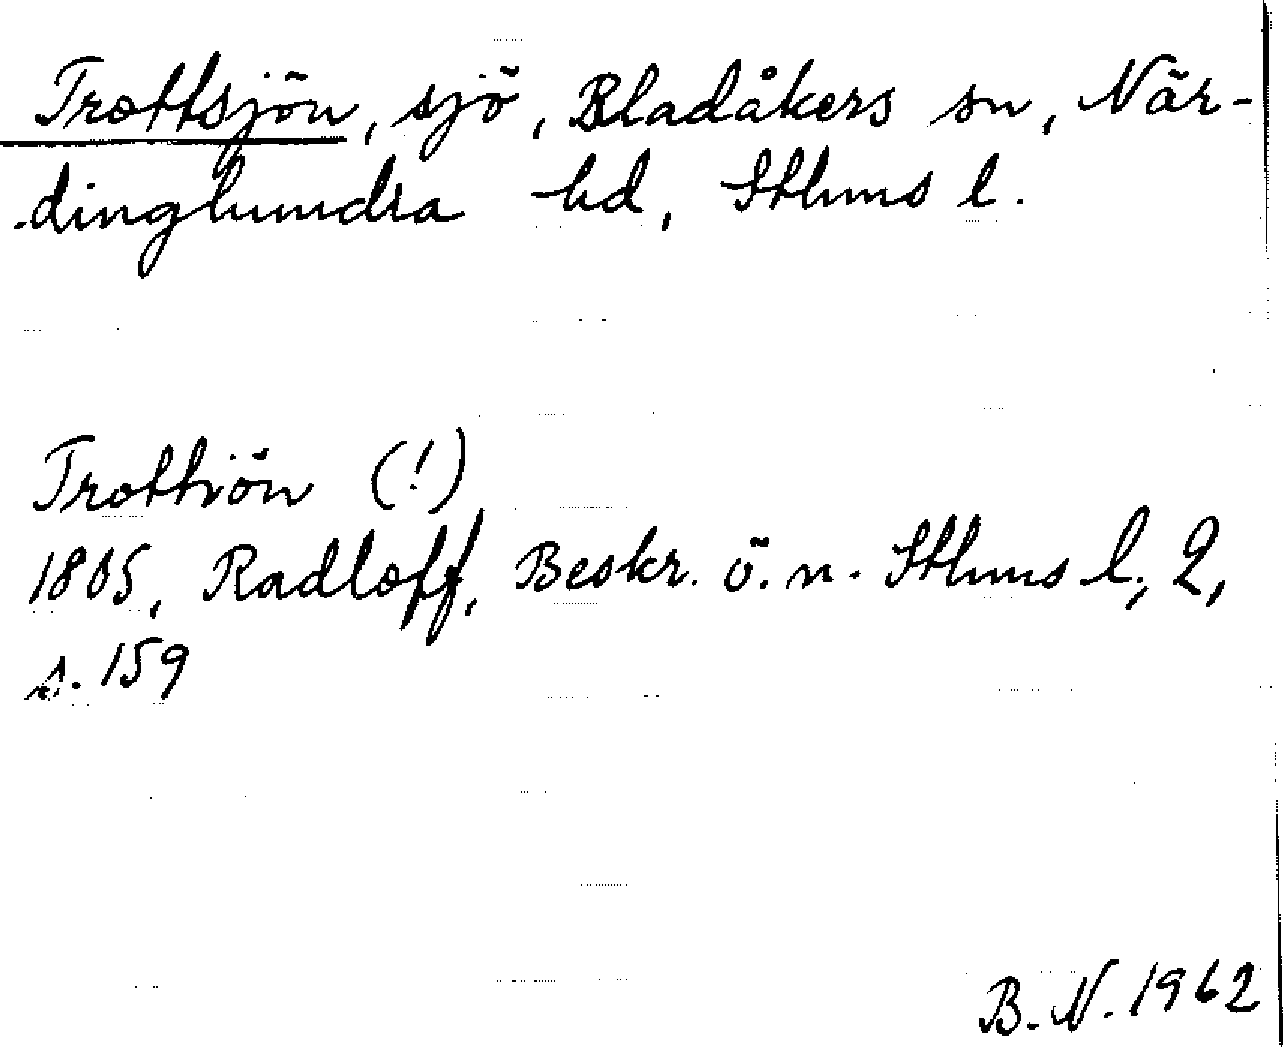 Trottsjön, sjö, Bladåkers sn, När-
dinghundra hd, Sthms l.
Trottiön (!)
1805, Radloff, Beskr. ö. n. Sthms l., 2,
s. 159
B. N. 1962